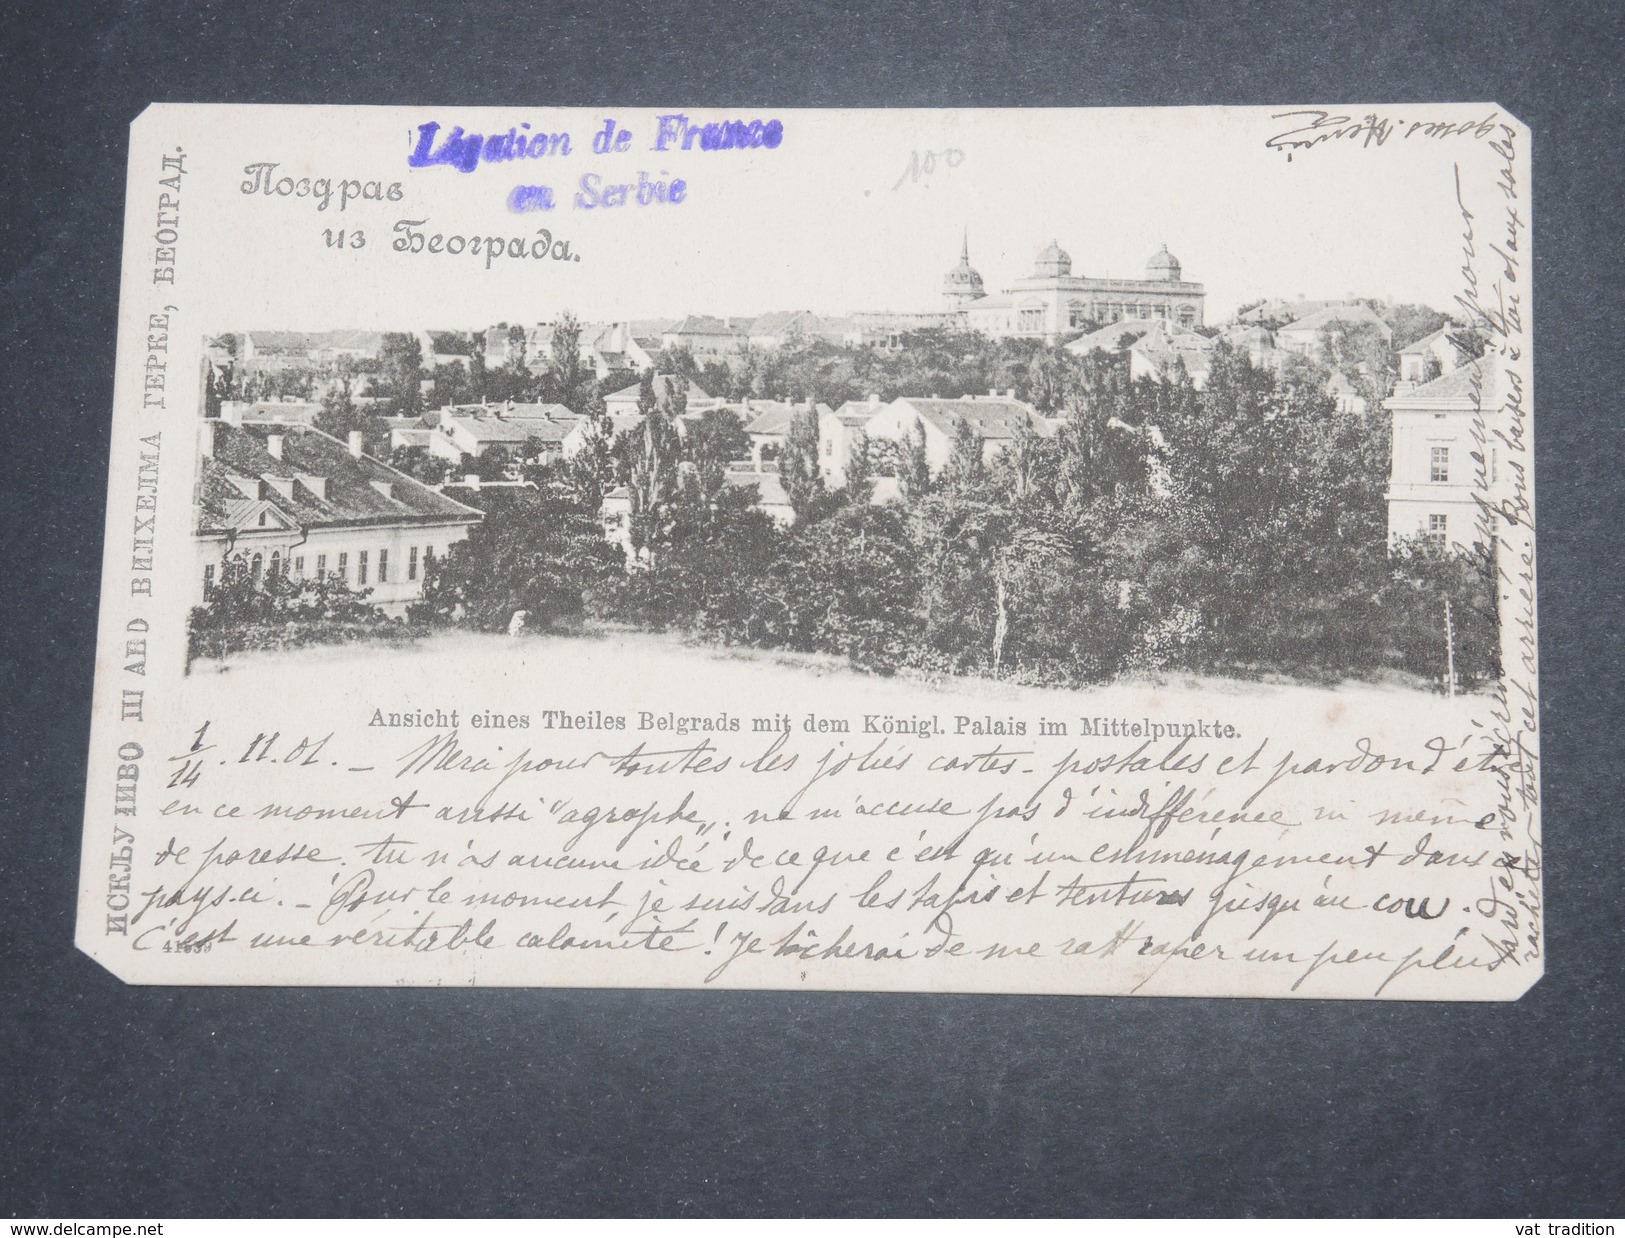 Légation de France
en Serbie
Поздрав
из Београда.
100
ИСКЉУЧИВО ПРАВО ВИЛХЕЛМА ГЕРКЕ, БЕОГРАД.
Ansicht eines Theiles Belgrads mit dem Königl. Palais im Mittelpunkte.
1/14 . 11.01. — Merci pour toutes les jolies cartes-postales et pardon d'être
en ce moment aussi "agraphe"; ne m'accuse pas d'indifférence ni même
de paresse. tu n'as aucune idée de ce que c'est qu'un emménagement dans ce
pays-ci. — Pour le moment je suis dans les tapis et tentures jusqu'au cou.
C'est une véritable calamité! Je tâcherai de me rattraper un peu plus
41539
tard en vous écrivant longuement pour
racheter tout cet arriéré. Bons baisers à toi et aux
gosses. Henri
www.delcampe.net
vat tradition